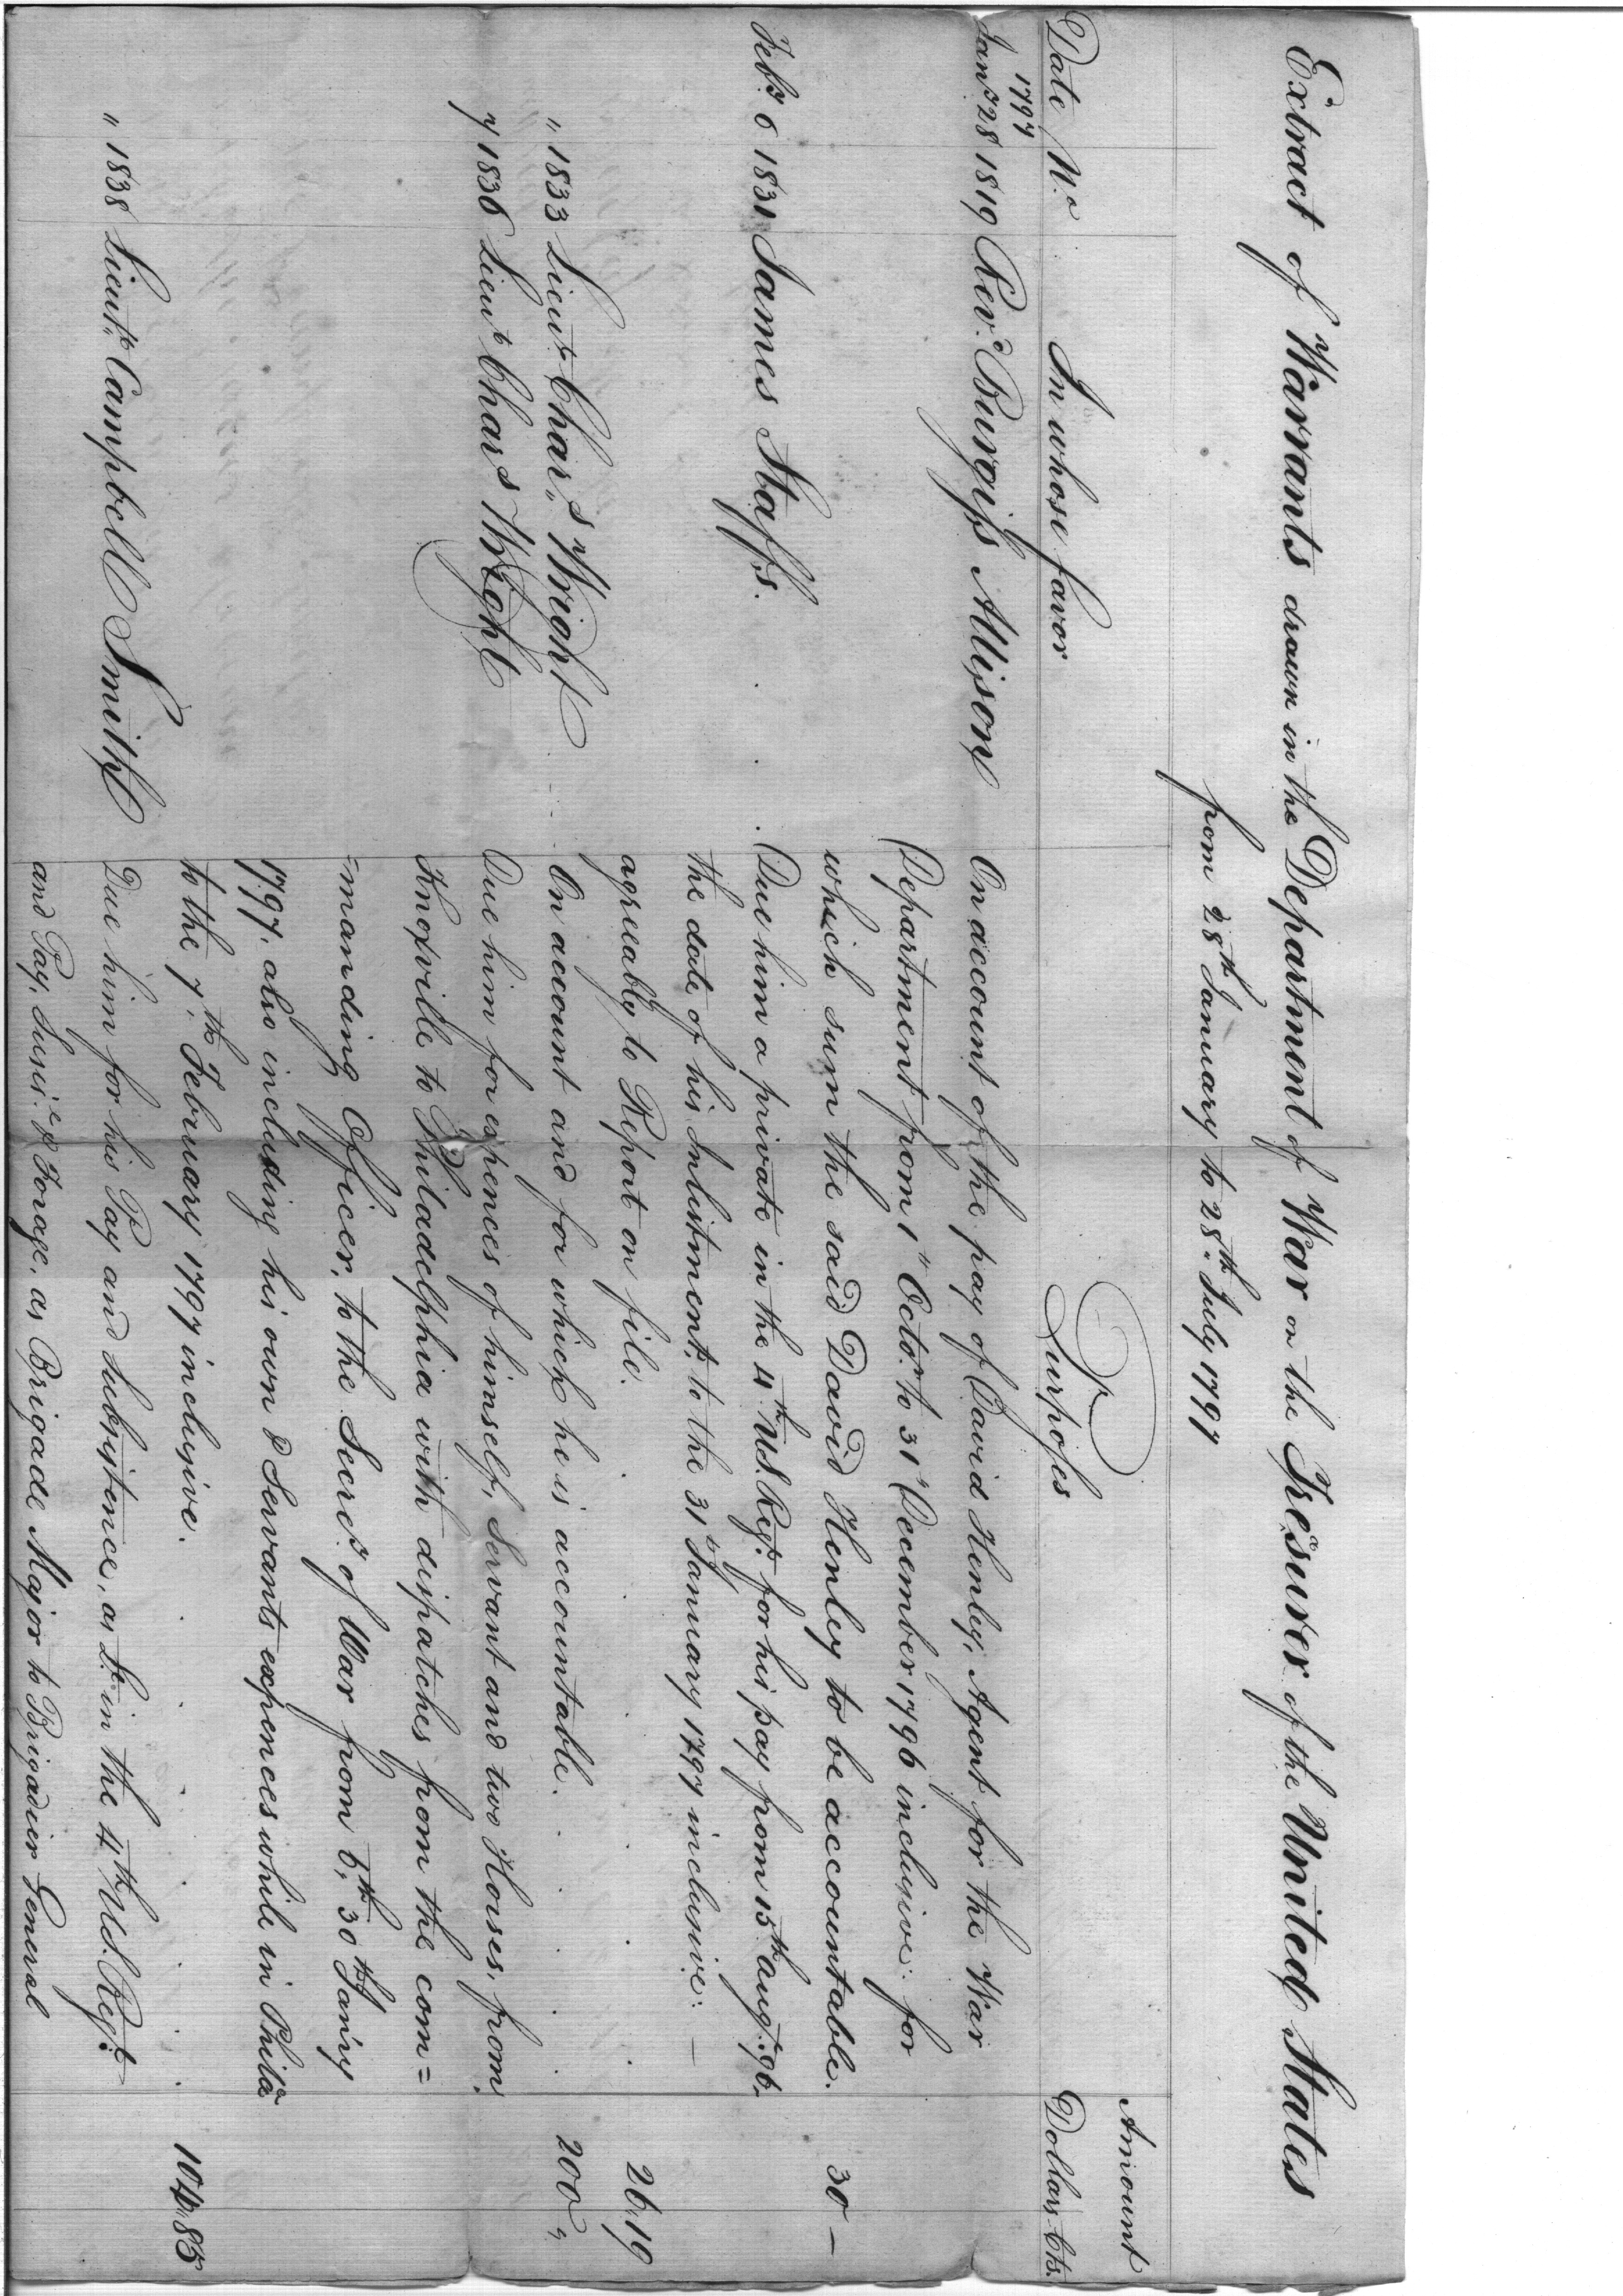 Extract of Warrants drawn in the Department of War on the Tresurer of the United States
from 28th January to 28th July 1797
Amount
Date No. In whose favor Purposes Dollars Cts.
1797
Jany 28 1819 Revd. Burgiss Allison On account of the pay of David Henley, Agent for the War
Department from 1st Octor. to 31st December 1796 inclusive: for
which sum the said David Henley to be accountable. 30 —
Feby. 6 1831 James Staffs. Due him a private in the 4th U.S. Regt. for his pay from 15th Augt. 96.
the date of his Inlistment, to the 31st January 1797 inclusive: —
agreeably to Report on file. 26.19
" 1833 Lieut. Chars. Wright On account and for which he is accountable. 200 "
7 1836 Lieut Chars Wright Due him for expences of himself, Servant and two Horses, from
Knoxville to Philadelphia with dispatches from the com=
=manding Officer, to the Secrey. of War from 6th. 30th Jan'y
1797. also including his own & Servants expences while in Phila
to the 7th. February 1797 inclusive. 104.85
" 1838 Lieut. Campbell Smith Due him for his Pay and Subsistence, as Lt. in the 4th U.S. Regt.
and Pay, Subs.ce & Forage, as Brigade Major to Brigadier General